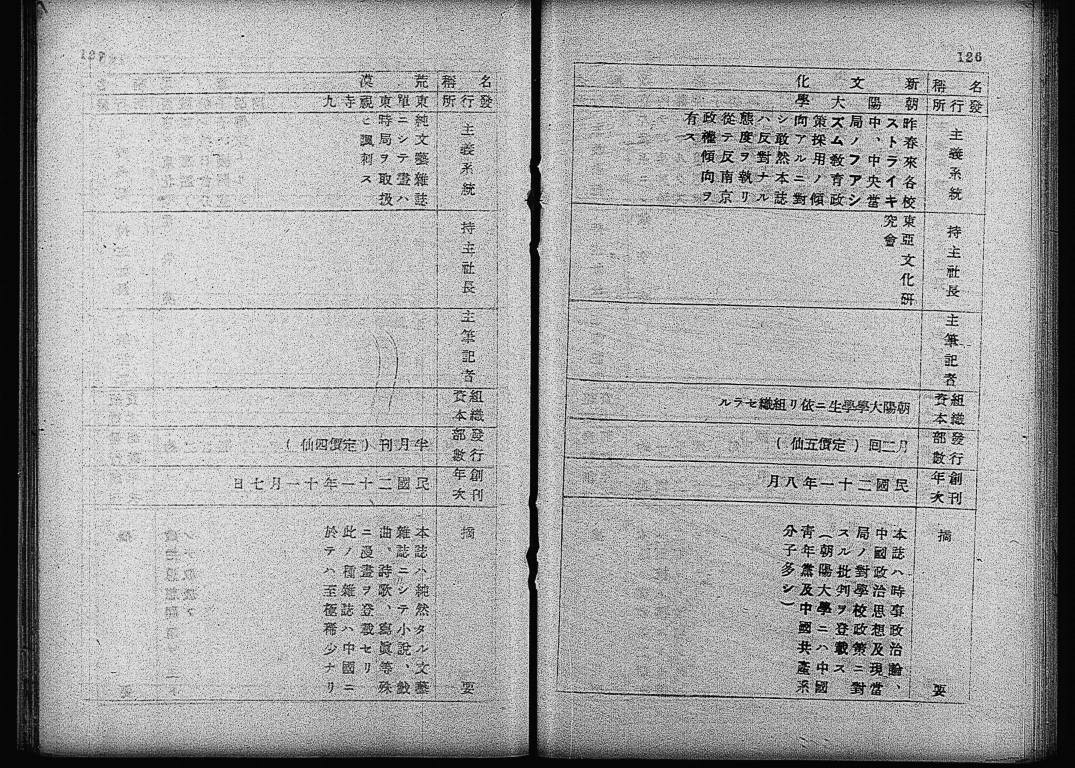 126
名稱
發行所
主義系統
持主社長
主筆記者
組織
資本
發行
部數
創刊
年次
摘要
新文化
朝陽大學
昨春來各校
ストライキ
中、中央當
局ノフアシ
ズム敎育政
策採用ノ傾
向アルニ對
シ敢然本誌
ハ反對ナル
態度ヲ執リ
從テ反南京
政權傾向ヲ
有ス
東亞文化硏
究會
朝陽大學學生ニ依リ組織セラル
月二回(定價五仙)
民國二十一年八月
本誌ハ時事政治論、
中國政治思想及現當
局ノ對學校政策ニ對
スル批判ヲ登載ス
(朝陽大學ニハ中國
靑年黨及中國共產系
分子多シ)
127
名稱
發行所
主義系統
持主社長
主筆記者
組織
資本
發行
部數
創刊
年次
摘要
荒漠
東單東觀寺九
純文藝雜誌
ニシテ晝ハ
時局ヲ取扱
ヒ諷刺ス
半月刊(定價四仙)
民國二十一年十一月七日
本誌ハ純然タル文藝
雜誌ニシテ小說、戲
曲、詩歌、寫眞等殊
ニ漫畫ヲ登載セリ
此ノ種雜誌ハ中國ニ
於テハ至極稀少ナリ